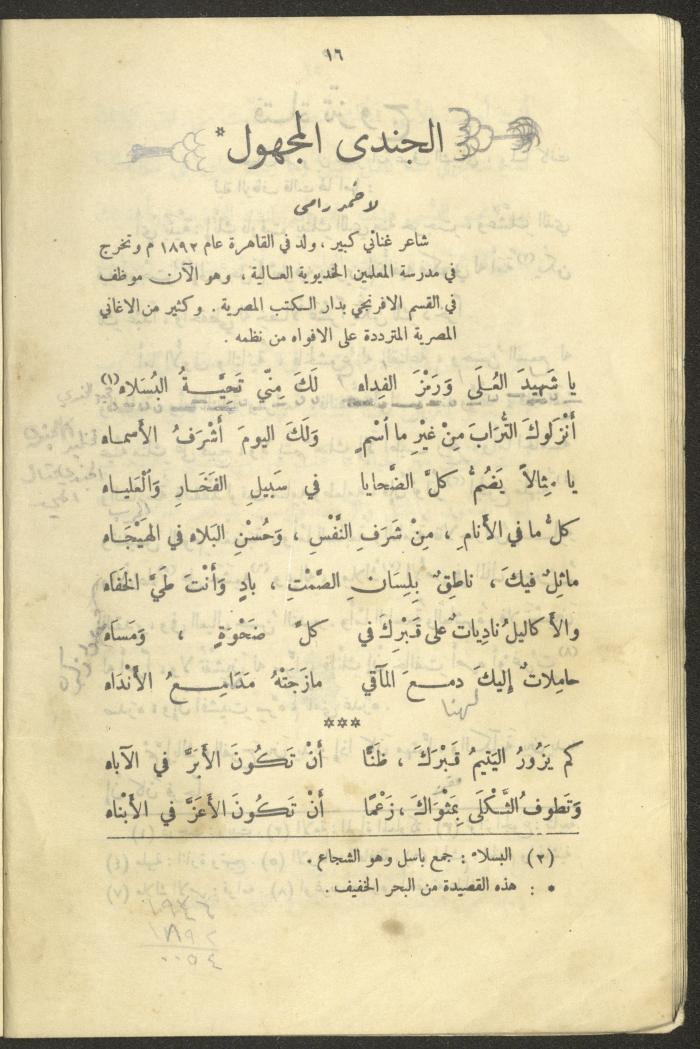 ١٦
الجندى المجهول *
لأحمد رامى
شاعر غنائي كبير ، ولد في القاهرة عام ١٨٩٢ م وتخرج
في مدرسة المعلمين الخديوية العالية ، وهو الآن موظف
في القسم الافرنجي بدار الكتب المصرية . وكثير من الاغاني
المصرية المترددة على الافواه من نظمه .
يا شَهِيدَ العُلَى وَرَمْزَ الفِداء لَكَ مِنّي تَحِيَّةُ البُسَلاء (١)
أَنْزَلوكَ التُّرَابَ مِنْ غَيْرِ ما أسْمٍ وَلَكَ اليومَ أَشْرَفُ الأَسماء
يا مِثالاً يَضُمُّ كلَّ الضَّحايا في سَبِيلِ الفَخَارِ وَالْعَلياء
كلُّ ما في الأَنامِ ، مِنْ شَرَفِ النَّفْسِ ، وَحُسْنِ البَلاء في الهَيْجَاء
ماثِلٌ فيكَ ، ناطِقٌ بِلِسَانِ الصَّمْتِ ، بادٍ وَأَنْتَ طَيَّ الخَفاء
والأَكاليلُ نادِياتٌ على قَبْرِكَ في كلِّ ضَحْوَةٍ ، وَمَسَاء
حامِلاتٌ إليكَ دمعَ المآقي مازَجَتْهُ مَدَامِعُ الأَنْدَاء
***
كم يَزُورُ اليَتِيمُ قَبْرَكَ ، ظَنًّا أَنْ تَكُونَ الأَبَرَّ في الآباء
وَتَطوفُ الثَّكْلَى بِمَثْوَاكَ ، زَعْمًا أَنْ تَكُونَ الأَعَزَّ في الأَبْناء
(٢) البسلاء : جمع باسل وهو الشجاع .
* : هذه القصيدة من البحر الخفيف .
١٩٤٦
١٨٩٢
٠٠٥٤